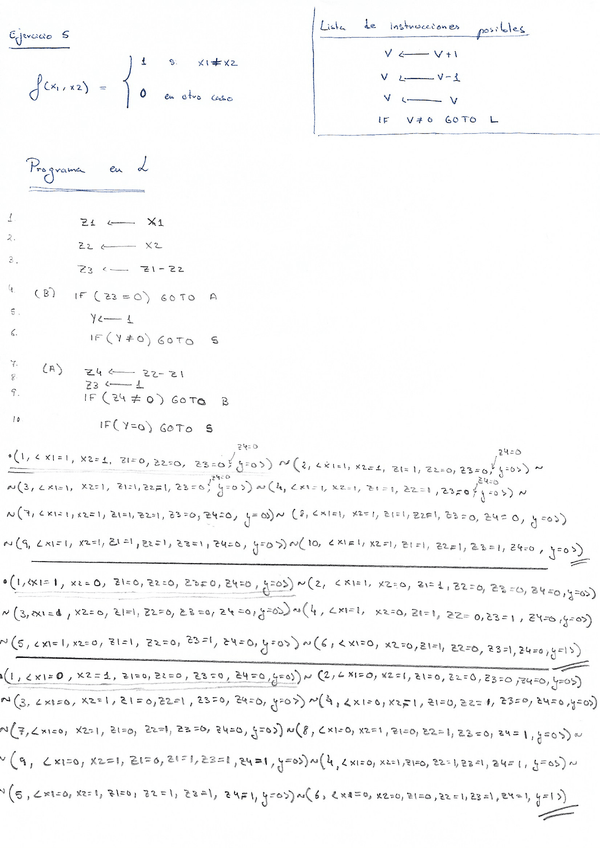 Ejercicio 5
f(x1, x2) = { 1 si x1 ≠ x2
0 en otro caso
Lista de instrucciones posibles
V ← V+1
V ← V-1
V ← V
IF V≠0 GOTO L
Programa en L
1 Z1 ← X1
2. Z2 ← X2
3. Z3 ← Z1-Z2
4 (B) IF (Z3=0) GOTO A
5. Y ← 1
6. IF (Y≠0) GOTO S
7. (A) Z4 ← Z2-Z1
8 Z3 ← 1
9. IF (Z4≠0) GOTO B
10 IF (Y=0) GOTO S
Z4=0 Z4=0
•(1, <x1=1, x2=1, z1=0, z2=0, z3=0, y=0>) ~ (2, <x1=1, x2=1, z1=1, z2=0, z3=0, y=0>) ~
Z4=0 Z4=0
~(3, <x1=1, x2=1, z1=1, z2=1, z3=0, y=0>) ~ (4, <x1=1, x2=1, z1=1, z2=1, z3=0, y=0>) ~
~(7, <x1=1, x2=1, z1=1, z2=1, z3=0, z4=0, y=0>) ~ (8, <x1=1, x2=1, z1=1, z2=1, z3=0, z4=0, y=0>)
~(9, <x1=1, x2=1, z1=1, z2=1, z3=1, z4=0, y=0>) ~ (10, <x1=1, x2=1, z1=1, z2=1, z3=1, z4=0, y=0>)
•(1, <x1=1, x2=0, z1=0, z2=0, z3=0, z4=0, y=0>) ~ (2, <x1=1, x2=0, z1=1, z2=0, z3=0, z4=0, y=0>)
~(3, <x1=1, x2=0, z1=1, z2=0, z3=0, z4=0, y=0>) ~ (4, <x1=1, x2=0, z1=1, z2=0, z3=1, z4=0, y=0>)
~(5, <x1=1, x2=0, z1=1, z2=0, z3=1, z4=0, y=0>) ~ (6, <x1=0, x2=0, z1=1, z2=0, z3=1, z4=0, y=1>)
•(1, <x1=0, x2=1, z1=0, z2=0, z3=0, z4=0, y=0>) ~ (2, <x1=0, x2=1, z1=0, z2=0, z3=0, z4=0, y=0>)
~(3, <x1=0, x2=1, z1=0, z2=1, z3=0, z4=0, y=0>) ~ (4, <x1=0, x2=1, z1=0, z2=1, z3=0, z4=0, y=0>)
~(7, <x1=0, x2=1, z1=0, z2=1, z3=0, z4=0, y=0>) ~ (8, <x1=0, x2=1, z1=0, z2=1, z3=0, z4=1, y=0>) ~
~(9, <x1=0, x2=1, z1=0, z1=1, z3=1, z4=1, y=0>) ~ (4, <x1=0, x2=1, z1=0, z2=1, z3=1, z4=1, y=0>) ~
~(5, <x1=0, x2=1, z1=0, z2=1, z3=1, z4=1, y=0>) ~ (6, <x1=0, x2=0, z1=0, z2=1, z3=1, z4=1, y=1>)